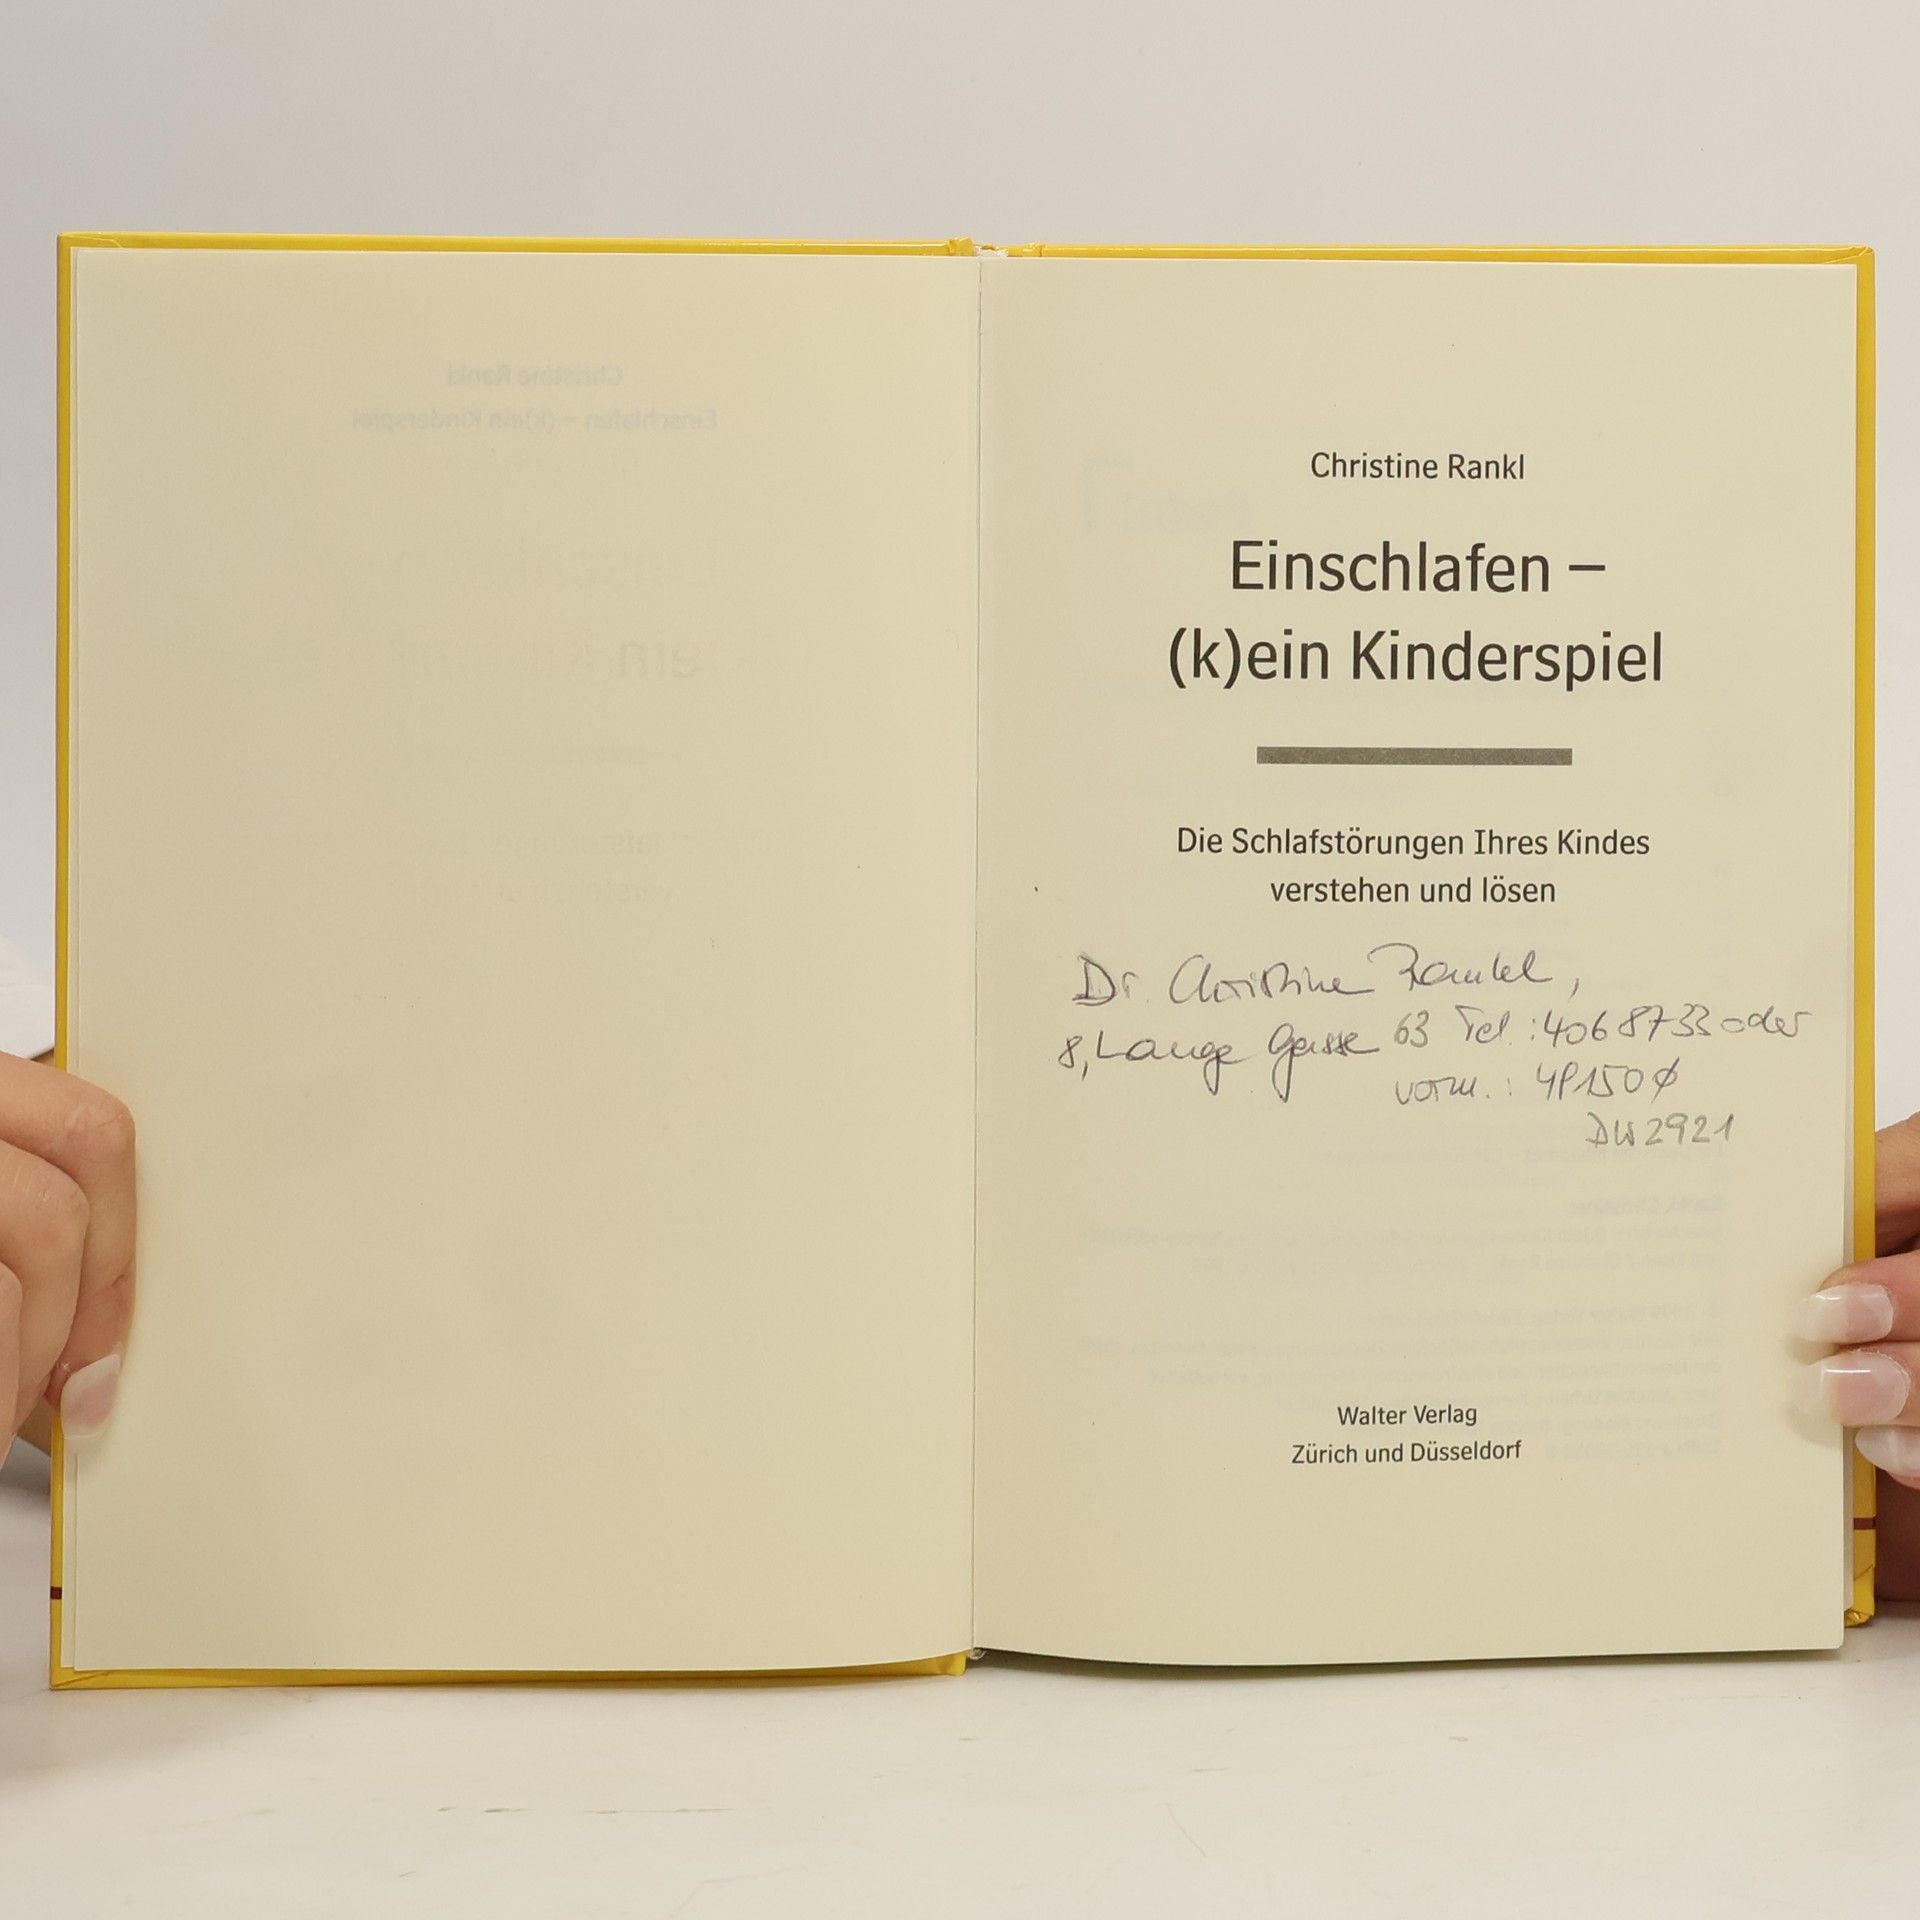 Christine Rankl
Einschlafen – (k)ein Kinderspiel
Christine Rankl
Einschlafen –
(k)ein Kinderspiel
Die Schlafstörungen Ihres Kindes
verstehen und lösen
Dr. Christine Rankl,
8, Lange Gasse 63 Tel.: 4068733 oder
vorm.:
DW 2921
Walter Verlag
Zürich und Düsseldorf